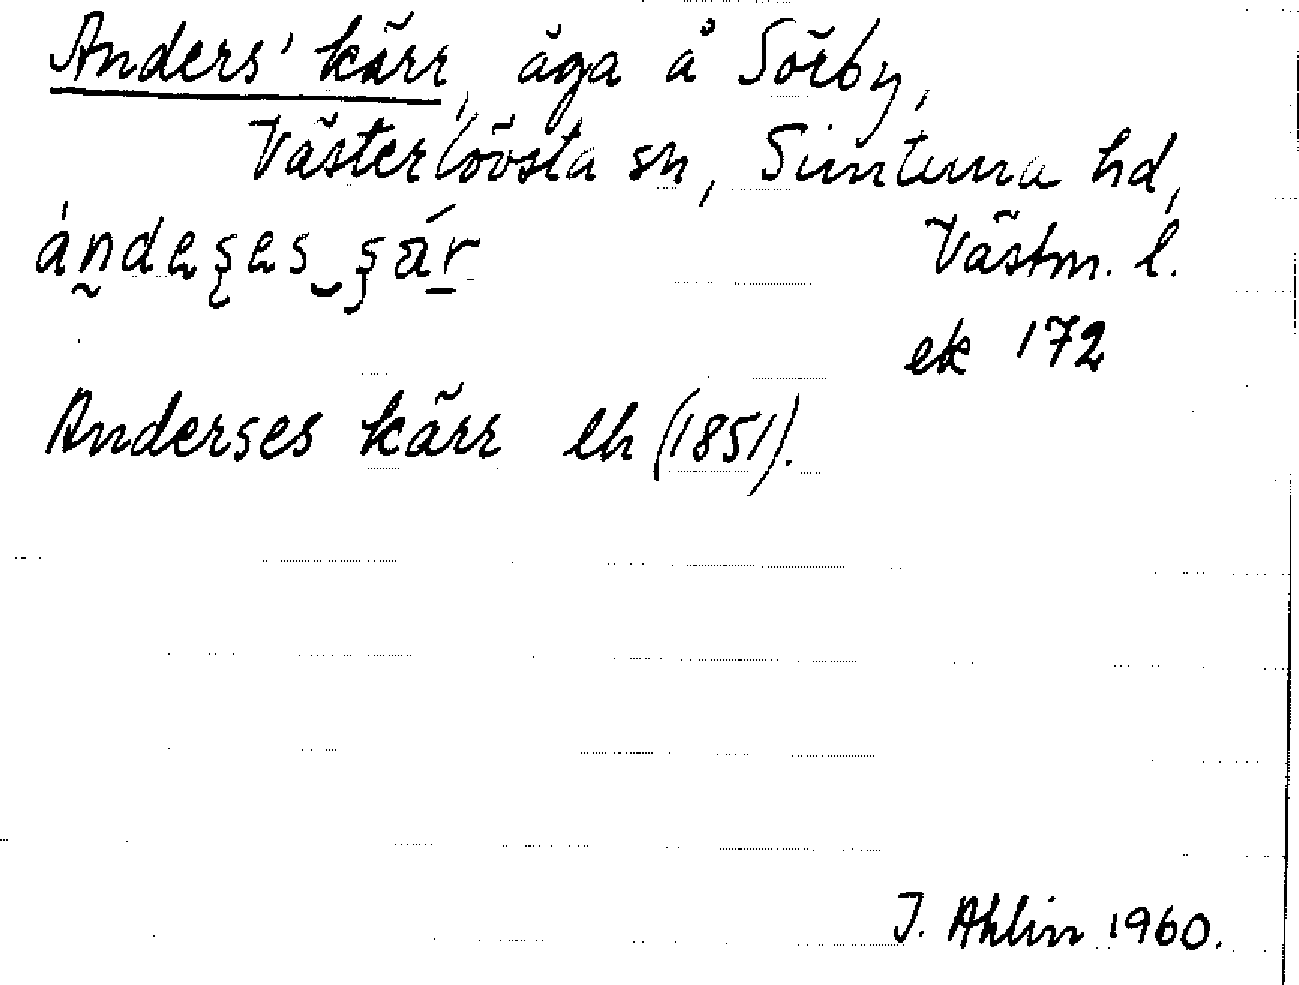 Anders' kärr, äga å Sörby,
Västerlövsta sn, Simtuna hd,
Västm. l.
ek 172
Anderses kärr lh (1851).
J. Ahlin 1960.